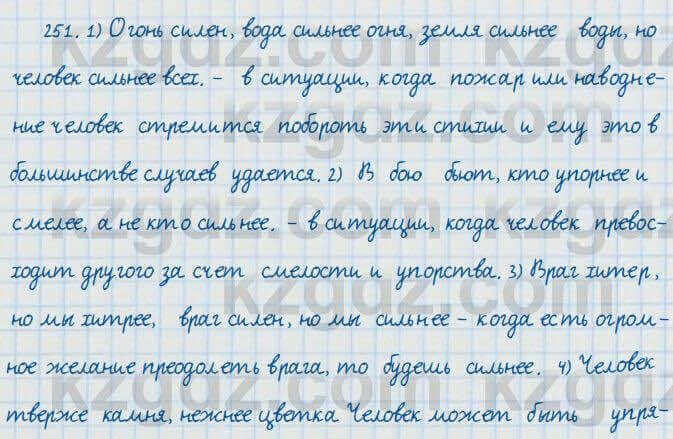 251. 1) Огонь силен, вода сильнее огня, земля сильнее воды, но
человек сильнее всех. - в ситуации, когда пожар или наводне-
ние человек стремится побороть эти стихии и ему это в
большинстве случаев удается. 2) В бою бьют, кто упорнее и
смелее, а не кто сильнее. - в ситуации, когда человек превос-
ходит другого за счет смелости и упорства. 3) Враг хитер,
но мы хитрее, враг силен, но мы сильнее - когда есть огром-
ное желание преодолеть врага, то будешь сильнее. 4) Человек
тверже камня, нежнее цветка Человек может быть упря-
kzgdz.com kzgdz.com
kzgdz.com kzgdz.com
kzgdz.com kzgdz.com
kzgdz.com kzgdz.com